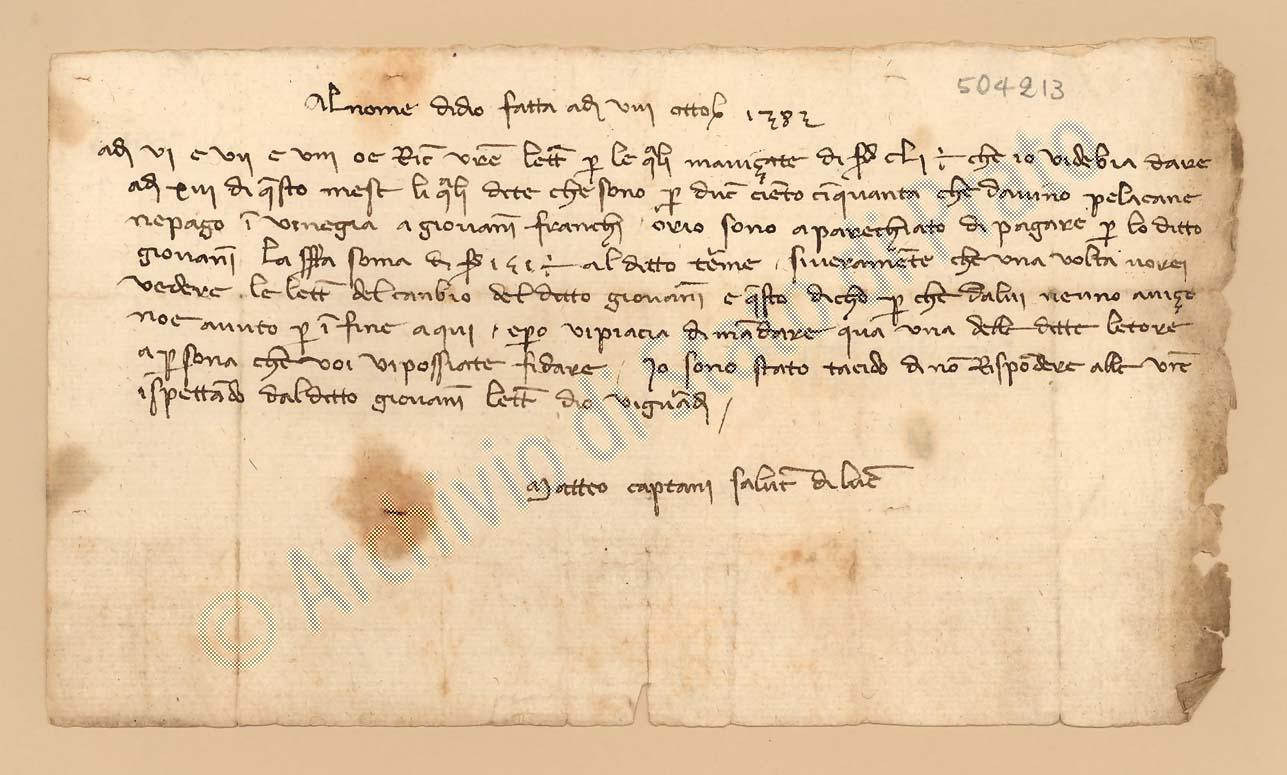 504213
Al nome di dio fatta adi VIII ottob 1383
adi VI e VII e VIII oe Ric vre lett p le qli mavizate di CLI che io vi debia dare
adi XVI di qsto mese li qli dite che sono p duc ciento cinquanta che davino pelacane
ne pago i vinegia a giovani franchi orio sono aparechiato di pagare p lo ditto
giovani la soma di 151 al ditto teme siveramente che una volta vorei
vedere le lett del canbio del ditto giovani e qsto dicho p che da lui neuno avizo
no e avuto p i fine a qui epo vi piacia di madare qua una delle ditte letore
a p sona che voi vi possiate fidare Io sono stato tacido di no Rispodere alle vre
ispettado dal ditto giovani lett dio vi guadi
Matteo captani salut di luc
© Archivio di Stato di Prato